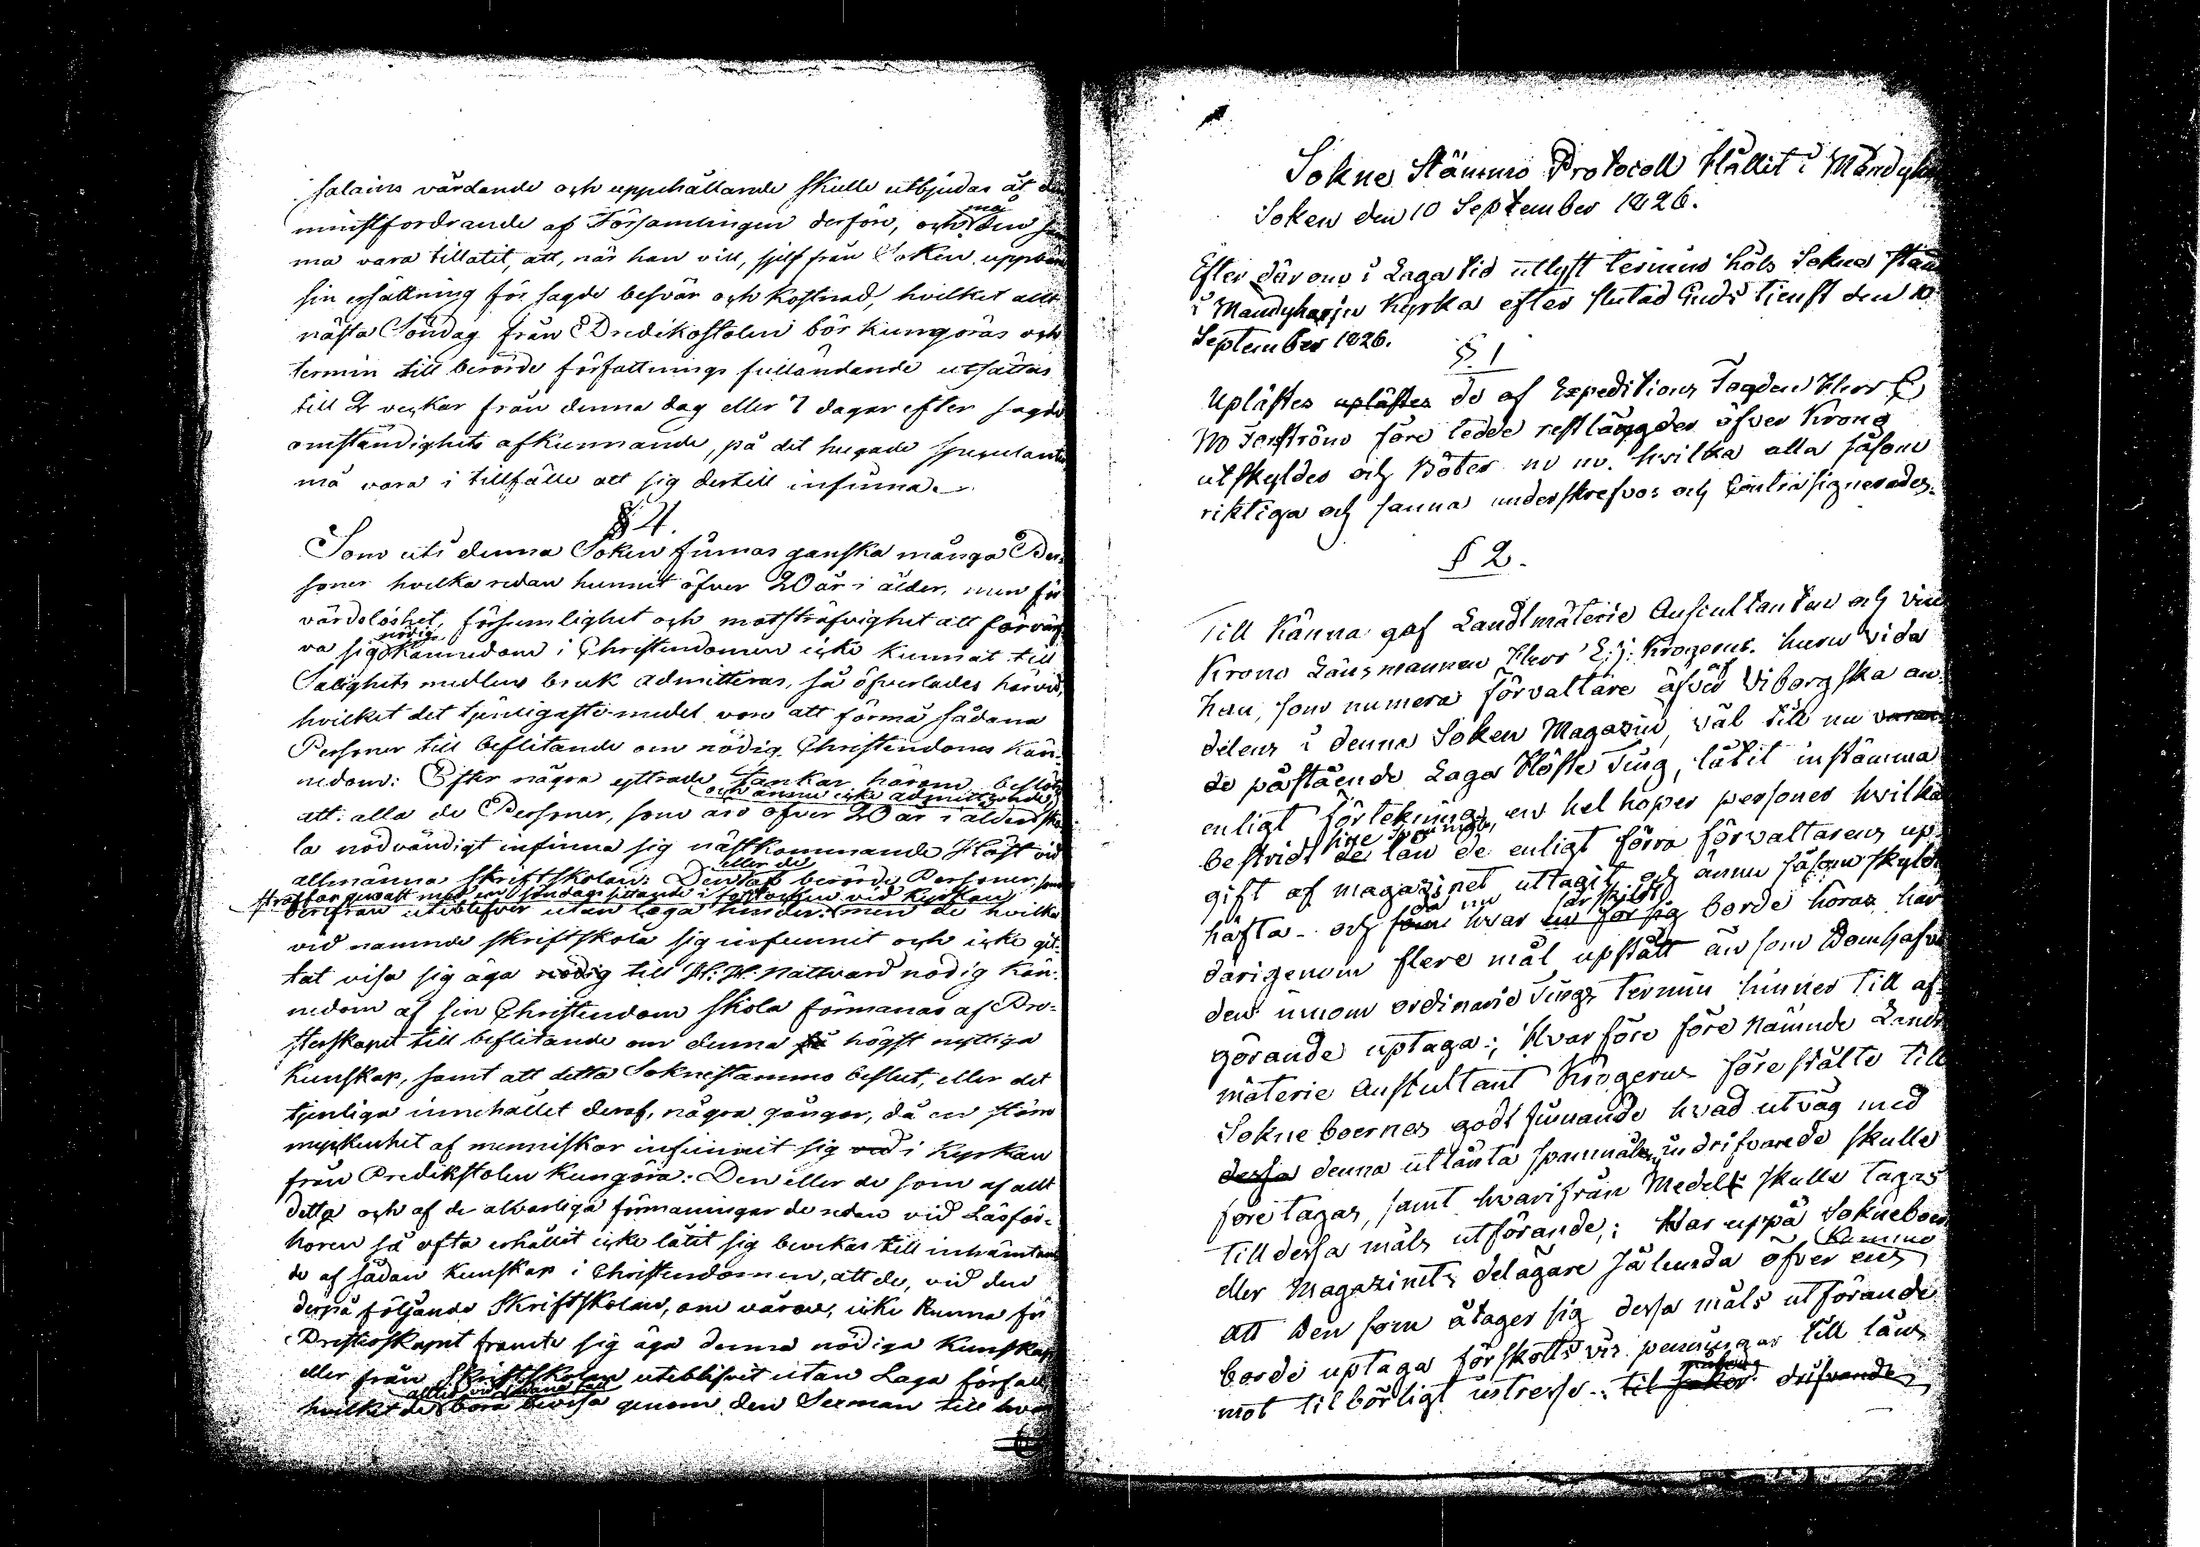 salains vårdande och uppehållande skulle utbjudas åt den
minstfordrande af Församlingen derföre, och må den sam
ma vara tillatit, att, när han vill, sjelf från Soken uppbära
sin ersättning för sagde besvär och kostnad, hvilket allt
nästa Söndag från Predikostolen bör kungöras och
termin till berörde författnings fulländande utsättas
till 2 veckor från denna dag eller 7 dagar efter sagde
omständighets afkunnande, på det hugade speculanter
må vara i tillfälle att sig dertill infinna.
§ 4.
Som uti denna Soken finnas ganska många Per-
soner hvilka redan hunnit öfver 20 år i ålder, men för
vårdslöshet, försumlighet och motsträfvighet att förvärf
va sig nödig kännedom i Christendomen icke kunnat till
Salighets medlens bruk admitteras, så öfverlades härvid,
hvilket det tjenligaste medel vore att förmå sådana
Personer till beflitande om nödig Christendoms kän-
nedom: Efter några yttrade tankar härom beslöts
och ännu icke admitterade
att alla de Personer, som äro öfver 20 år i ålder ska
la nödvändigt infinna sig nästkommande Höst vid
allmänna skriftskolan: Den eller de berörde Personer, som
straffas med en söndags sittande i fotstocken vid Kyrkan
derifrån uteblifver utan laga hinder: men de hvilka
vid namnde skriftskola sig infunnit och icke git-
tat visa sig äga nödig till H. H. Nattward nödig kän-
nedom af sin Christendom skola förmanas af Pre-
sterskapet till beflitande om denna så högst nyttiga
kunskap, samt att detta Soknestämmo beslut, eller det
tjenliga innehållet deraf, några gånger, då en större
myckenhet af menniskor infunnit sig vid i Kyrkan
från Predikstolen kungöra: Den eller de som af allt
detta och af de alvarliga förmaningar de redan vid Läsför-
hören så ofta erhållit icke låtit sig bevekas till inhämtan
de af sådan kunskap i Christendomen, att de, vid den
derpå följande Skriftskolan, om våren, icke kunna för
Presterskapet framte sig äga denna nödiga kunskap
eller från Skriftskolan uteblifvit utan Laga förfall
alltid vid sådana fall
hvilket de böra bevisa genom den Sexman till hvar
Sokne Stämmo Protocoll Hållit i Mändyharju
Soken den 10 September 1826.
Efter där om i Laga tid utlyst termins höls Sokne stäm
i Mandyharju Kyrka efter slutad Guds tienst den 10
September 1826.
§. 1
Uplästes uplästes de af Expeditions Fogden Herr C
W Forström före tedde restlängder öfver Krono
utskylder och Böter m m. hvilka alla såsom
riktiga och sanna underskrefvos och Contrasignerades.
§ 2.
Till känna gaf Landtmäterie Auscultanten och vice
Krono Länsmannen Herr E: J: Krogerus. huru vida
han, som numera förvaltare öfver af Viborgska an-
delens i denna Soken Magasin, väl till nu varan
de påstående Laga Höste Ting, låtit instämma
enligt förtekning en hel hoper personer hvilka
bestridt de lån de enligt förra förvaltarens up-
gift af magazinet uttagit och ännu såsom skyldi
häfta - och som då nu hvar en för sig särskildt borde höras har
därigenom flere mål upstått än som Domhafva
den innom ordinarie Tings termin hinner till af-
görande uptaga; Hvarföre före nämnde Landt
mäterie Auscultant Krogerus förestälte till
Sokneboernes godt finnande hvad utväg med
dessa denna utlånta spannmåls indrifvande skulle
företagas, samt hvarifrån Medel skulle tagas
till dessa måls utförande; Hvar uppå Sokneboer
eller Magazinets delägare sålunda öfver ens Kommo
att Den som åtager sig dessa måls utförande
borde uptaga förskotts vis penningar till låns
mot tilbörligt intresse til saker drifvande